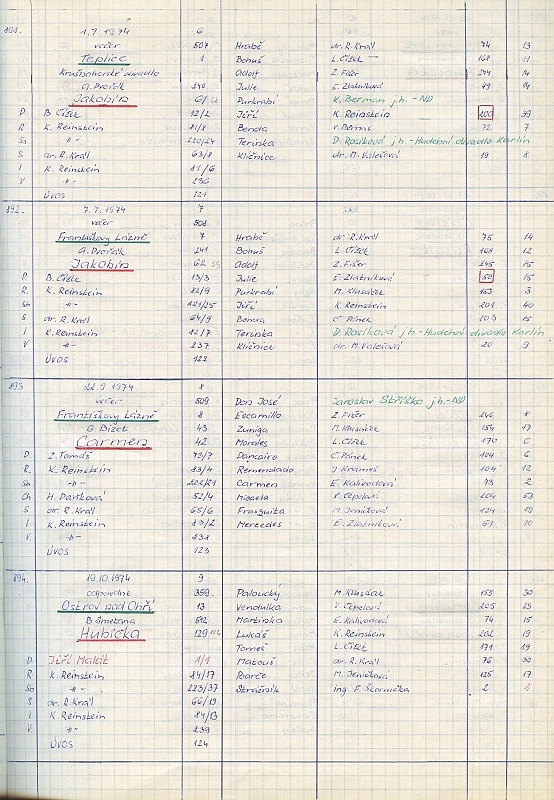 191. 1.7.1974 6
večer 507 Hrabě dr. R. Král 74 13
Teplice 1 Bohuš L. Čížek 168 11
Krušnohorské divadlo Adolf Z. Fišer 244 14
A. Dvořák 240 Julie E. Zlatníková 49 14
Jakobín 61/ Purkrabí K. Berman j.h. - ND
D B. Čížek 12/2 Jiří K. Reinstein 200 39
R K. Reinstein 81/8 Benda V. Bernas 72 7
Sb -"- 220/24 Terinka D. Rosíková j.h - Hudební divadlo Karlín
S dr. R. Král 63/8 Klíčnice dr. M. Valešová 19 8
I K. Reinstein 11/6
V -"- 236
ÚVOS 121
192. 7.7.1974 7
večer 508
Františkovy Lázně 7 Hrabě dr. R. Král 75 14
A. Dvořák 241 Bohuš L. Čížek 169 12
Jakobín 62 Adolf Z. Fišer 245 15
D B. Čížek 13/3 Julie E. Zlatníková 50 15
R. K. Reinstein 82/9 Purkrabí M. Klusáček 153 3
Sb -"- 221/25 Jiří K. Reinstein 201 40
S dr. R. Král 64/9 Benda Č. Pánek 103 15
I K. Reinstein 12/7 Terinka D. Rosíková j.h - Hudební divadlo Karlín
V -"- 237 Klíčnice dr. M. Valešová 20 9
ÚVOS 122
193 22.9.1974 8
večer 509 Don José Jaroslav Stříška j.h. - ND
Františkovy Lázně 8 Escamillo Z. Fišer 246 8
G. Bizet 43 Zuniga M. Klusáček 154 17
Carmen 42 Morales L. Čížek 170 6
D Z. Tomáš 73/7 Dancairo Č. Pánek 104 6
R. K. Reinstein 83/4 Remendado J. Krameš 104 12
Sb -"- 222/21 Carmen E. Kalivodová 73 2
Ch H. Daňková 52/4 Micaela V. Čepelová 204 53
S dr. R. Král 65/6 Frasquita M. Jeničková 124 19
I K. Reinstein 13/2 Mercedes E. Zlatníková 51 10
V. -"- 238
ÚVOS 123
194. 19.10.1974 9
odpoledne 359. Paloucký M. Klusáček 155 30
Ostrov nad Ohří 13 Vendulka V. Čepelová 205 29
B. Smetana 512 Martinka E. Kalivodová 74 15
Hubička 129 Lukáš K. Reinstein 202 19
Tomeš L. Čížek 171 19
D Jiří Malát 1/1 Matouš dr. R. Král 76 30
R K. Reinstein 84/17 Barče M. Jeničková 125 17
Sb -"- 223/37 Strážník Ing. F. Škornička 2 1
S dr. R. Král 66/19
I K. Reinstein 14/13
V -"- 239
ÚVOS 124